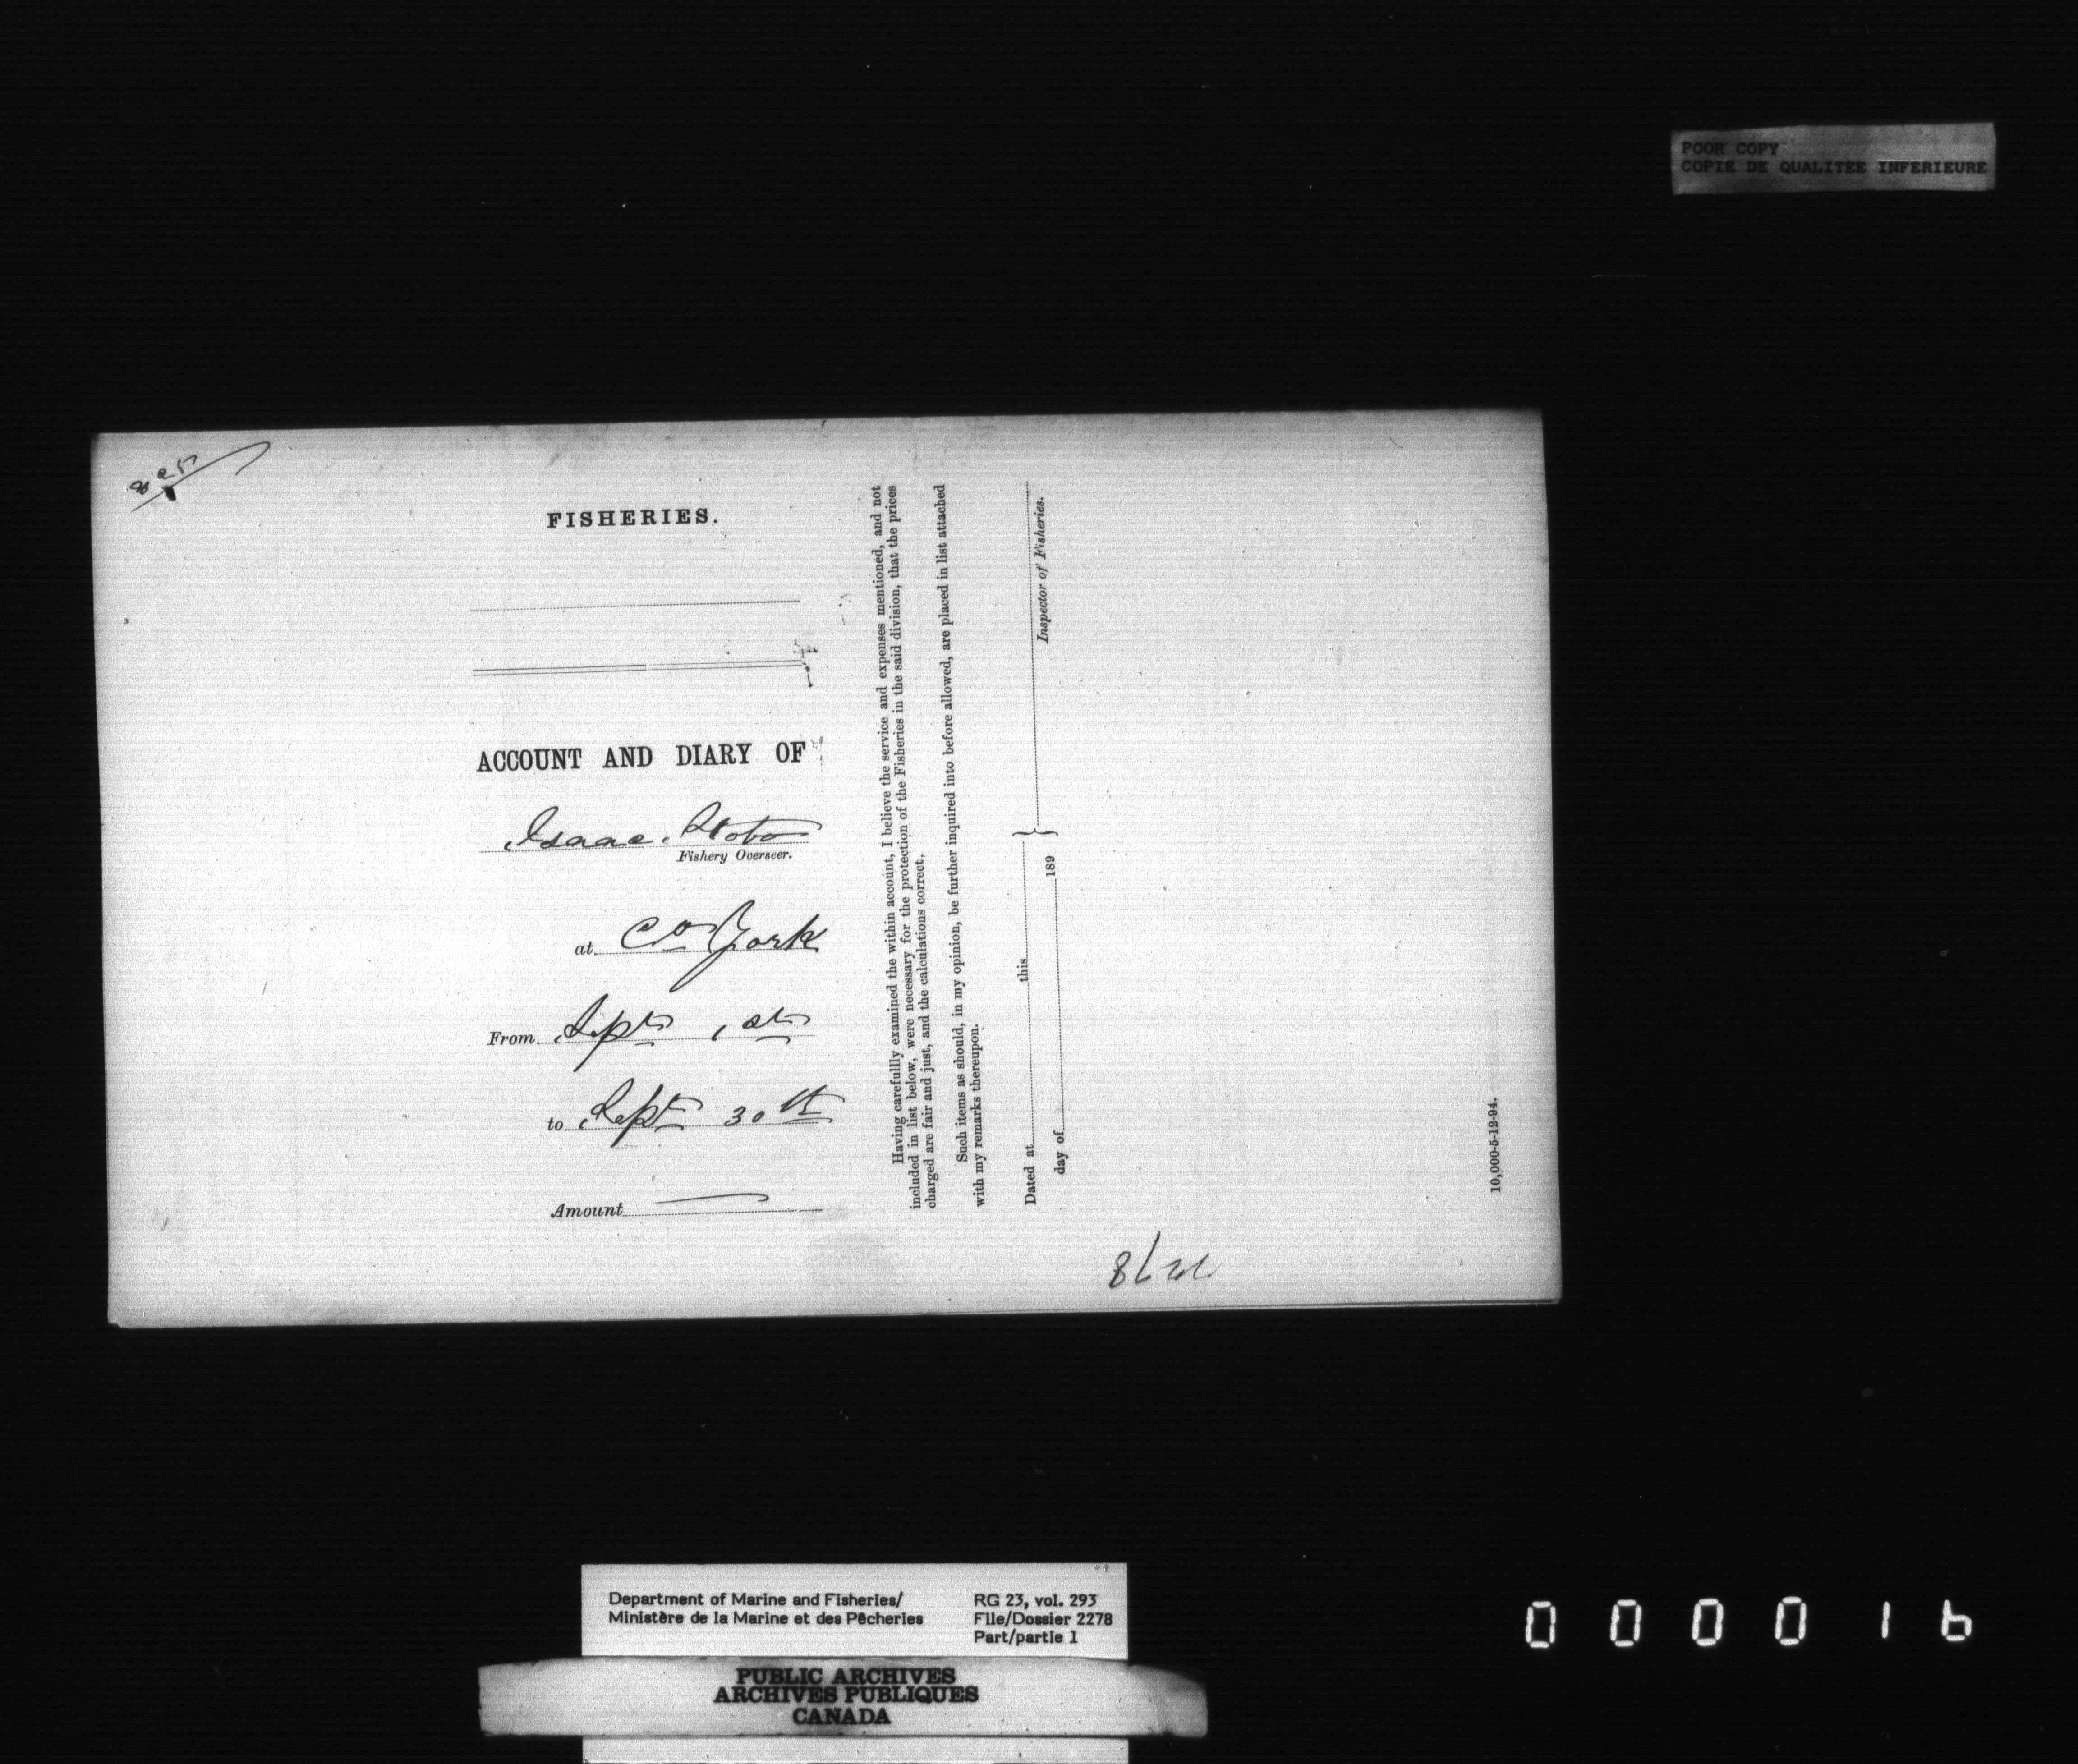 POOR COPY
COPIE DE QUALITEE INFERIEURE
225
FISHERIES.
ACCOUNT AND DIARY OF
Isaac
Fishery Overseer.
at Co York
From Sept 1st
to Sept 30th
Amount
Having carefullly examined the within account, I believe the service and expenses mentioned, and not
included in list below, were necessary for the protection of the Fisheries in the said division, that the prices
charged are fair and just, and the calculations correct.
Such items as should, in my opinion, be further inquired into before allowed, are placed in list attached
with my remarks thereupon.
Dated at this
day of 189
Inspector of Fisheries.
10,000-5-12-94.
Department of Marine and Fisheries/
Ministère de la Marine et des Pêcheries
RG 23, vol. 293
File/Dossier 2278
Part/partie 1
PUBLIC ARCHIVES
ARCHIVES PUBLIQUES
CANADA
000016